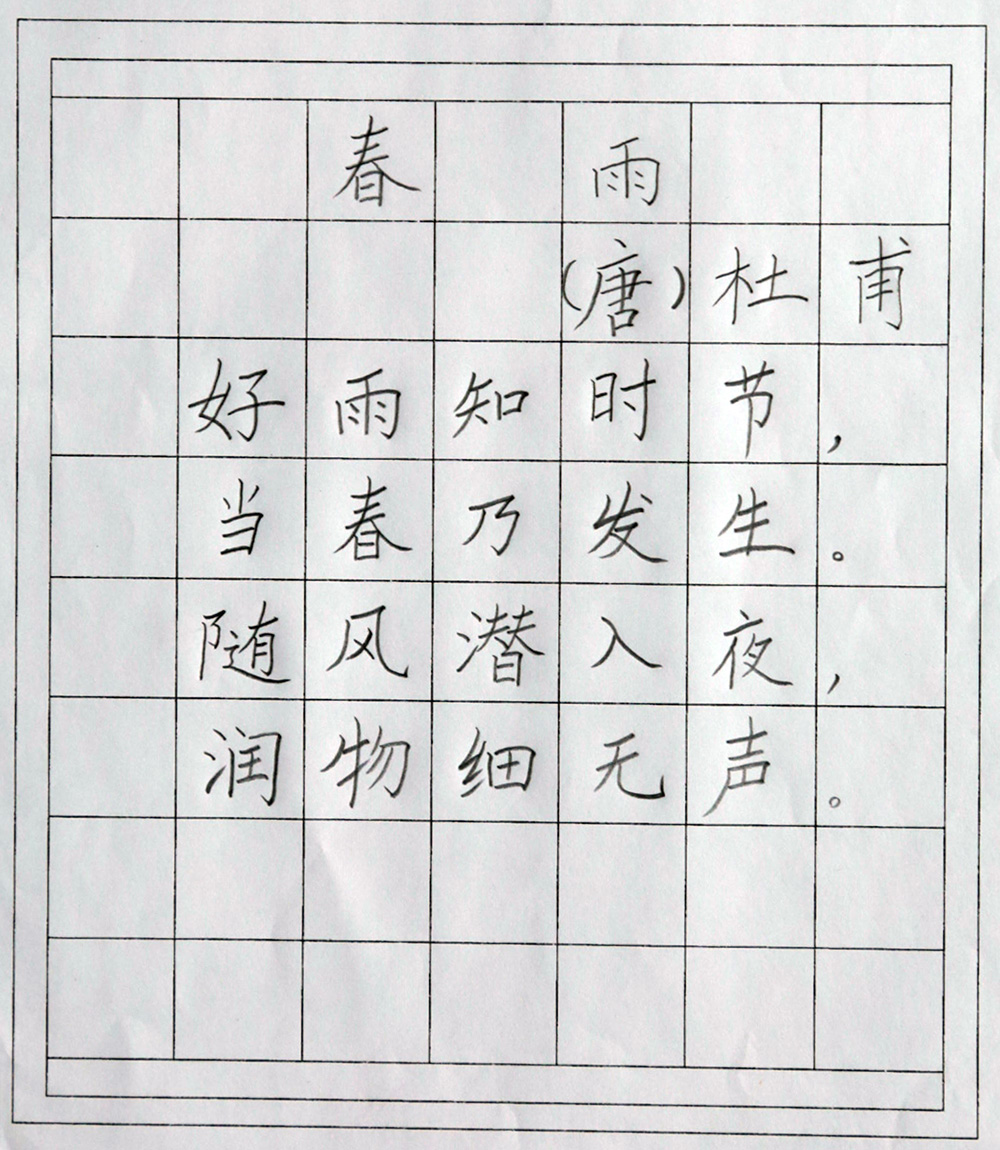 春雨
（唐）杜甫
好雨知时节，
当春乃发生。
随风潜入夜，
润物细无声。